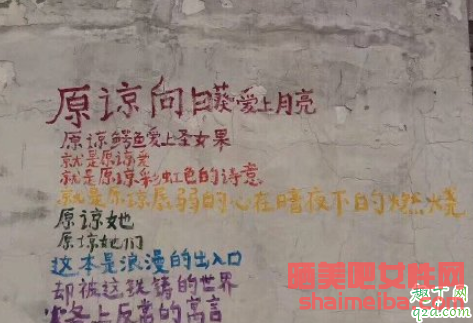 原谅向日葵爱上月亮
原谅鳄鱼爱上圣女果
就是原谅爱
就是原谅彩虹色的诗意
就是原谅孱弱的心在暗夜下的燃烧
原谅她也
原谅她们
这本是浪漫的出入口
却被这纰错的世界
上反常的寓言
晒美吧女性网
shaimeiba.com
趣丁网
qz0a.com